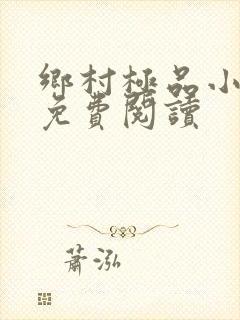 鄉村極品小
免費閱讀
蕭泓